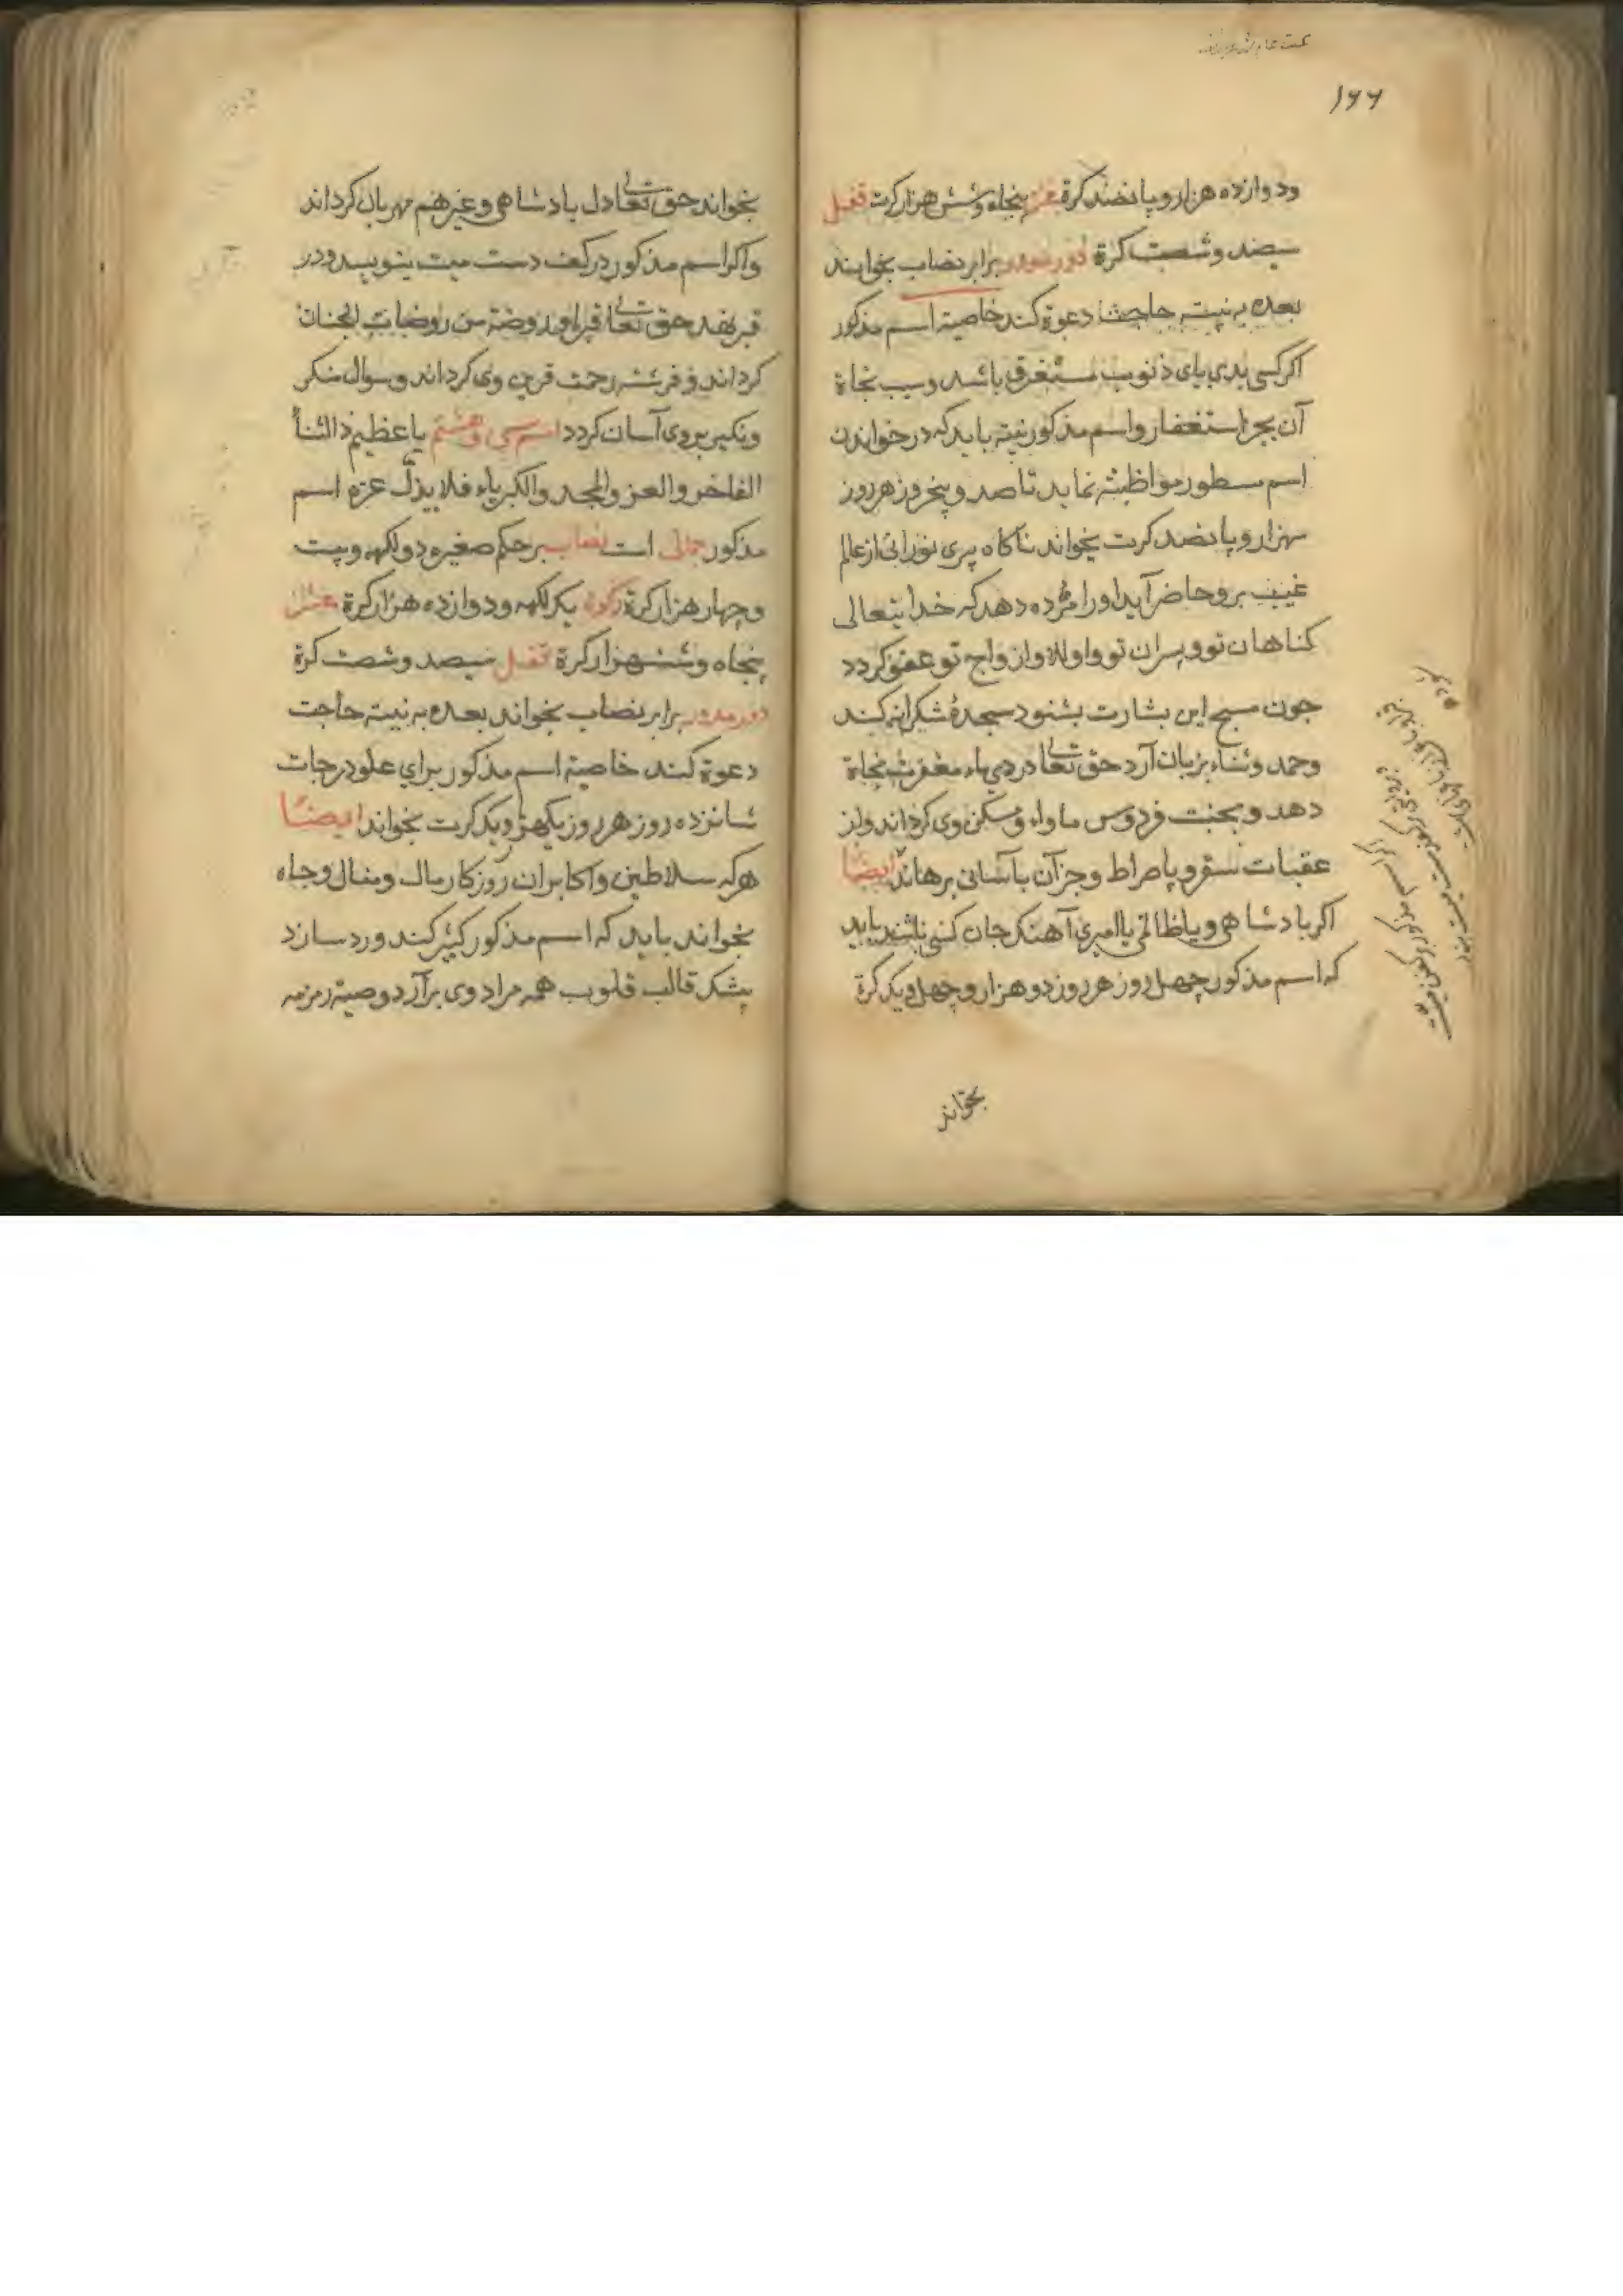 ۱۶۶
ودوازده هزار و پانصد کرة عشر پنجاه وشش هزار کرت قفل
سیصد وشصت کرة دور مدور برابر نصاب بخوانند
بعده به نیت حاجت دعوة کند خاصیة اسم مذکور
اکر کسی بدریای ذنوب مستغرق باشد وسبب نجاة
آن بجز استغفار واسم مذکور نیته باید که در خواندن
اسم مسطور مواظبته نماید تا صد وپنج روز هر روز
سهزار و پانصد کرت بخواند ناکاه پری نورانی از عالم
غیب برو حاضر آید اورا مژده دهد که خدایتعالی
کناهان تو وپسران تو واولاد وازواج تو عفو کردد
جون مسبح این بشارت بشنود سجدۀ شکرانه کند
وحمد وثناء بزبان آرد حق تعالی در دی ماه مغفرت نجاة
دهد و بجنت فردوس ماواه ومسکن وی کرداند واز
عقبات سقر و پاصراط وجزآن بآسانی برهاند ایضًا
اکر بادشاهی ویا ظالمی یا امیری آهنک جان کسی باشد باید
که اسم مذکور چهل روز هر روز دو هزار وچهل ویک کرة
بخواند
بخواند حق تعالی دل بادشاهی وغیرهم مهربان کرداند
واکر اسم مذکور در کف دست میت بنویسد ودر
قبر نهد حق تعالی قبر اورا روضة من روضات الجنان
کرداند وفرشته رحمت قرین وی کرداند وسوال منکر
ونکیر بروی آسان کردد اسم سی وهشتم یا عظیم ذا الثناء
الفاخر والعز والمجد والکبریاء فلا یذل عزه اسم
مذکور جمالی است نصاب بر حکم صغیره دو لکهه وبیست
وچهار هزار کرة زکوة یک لکهه ودوازده هزار کرة عشر
پنجاه وششهزار کرة قفل سیصد وشصت کرة
دور مدور برابر نصاب بخواند بعده به نیته حاجت
دعوة کند خاصیة اسم مذکور برای علو درجات
شانزده روز هر روز یکهزار ویک کرت بخواند ایضًا
هرکه سلاطین واکابران روزکار مال ومنال وجاه
بخواند باید که اسم مذکور کثیر کند ورد سازد
بیشک قالب قلوب همه مراد وی برآرد وصیة رمزمه